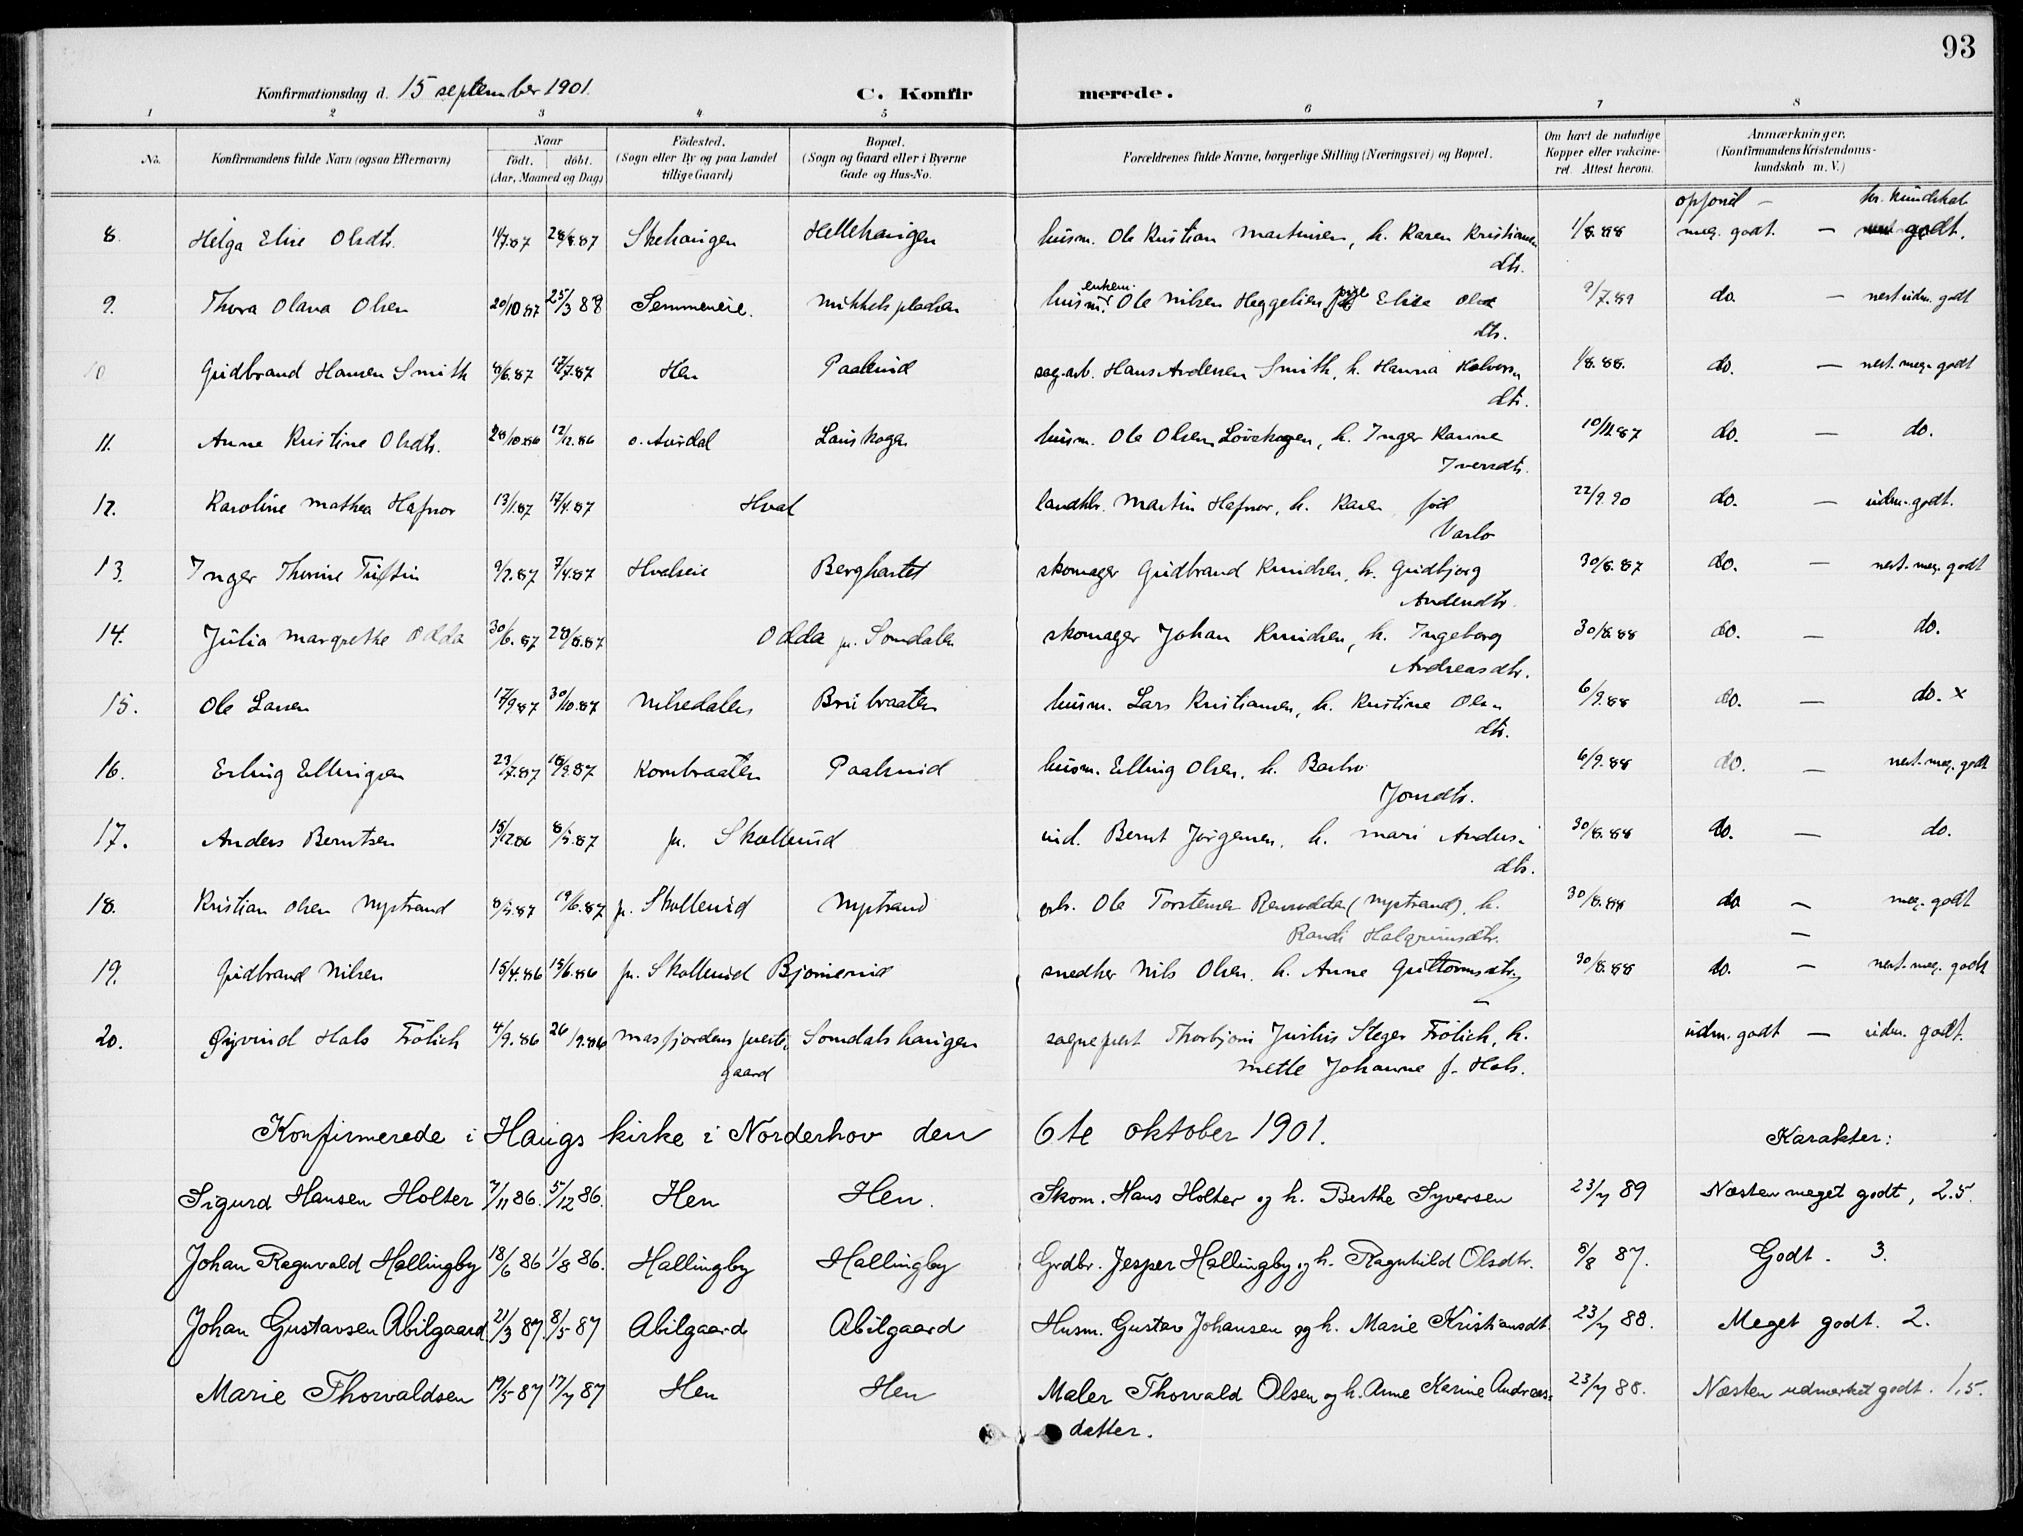 93
Konfirmationsdag d. 15 september 1901. C. Konfirmerede.
1 2 3 4 5 6 7 8
No. Konfirmandens fulde Navn (ogsaa Efternavn) Naar født. døbt. (Aar, Maaned og Dag) Fødested. (Sogn eller By og paa Landet tillige Gaard) Bopæl. (Sogn og Gaard eller i Byerne Gade og Hus-No. Forældrenes fulde Navne, borgerlige Stilling (Næringsvei) og Bopæl. Om havt de naturlige Kopper eller vakcineret. Attest herom. Anmærkninger. (Konfirmandens Kristendomskundskab m. V.)
opførsel — kr. kundskab
8. Helga Elise Olsdtr. 28/8.87 Skehaugen Hellehaugen husm. Ole Kristian Martinsen, h. Karen Kristiansen 1/8.88 meg. godt. — godt.
dtr.
9. Thora Olava Olsen 20/10 87 25/3 88 Semmeneie. Mikkelspladsen husm. enkem. Ole Nilsen Heggelien Elise Ols 9/7.89 do. — nest udm. godt
dtr.
10 Gudbrand Hansen Smith 8/6.87 17/7.87 Hen Paalerud sag.arb. Hans Andersen Smith, h. Hanna Halvors 1/8.88. do. — nest. meg. godt
dtr.
11. Anne Kristine Olsdtr. 28/10.86 12/12.86 o. Aurdal Lauskogen husm. Ole Olsen Løvskogen, h. Inger Karine 10/11.87 do. — do.
Iversdtr.
12. Karoline Mathea Hafnor 13/1.87 17/4.87 Hval landhdl. Martin Hafnor, h. Karen, fød 22/9.90 do. — udm. godt.
Varlo
13. Inger Thorine Tuftin 9/2.87 7/4.87 Hvalseie Berghaustet skomager Gudbrand Knudsen, h. Gudbjørg 30/8.87 do. — nest. meg. godt
Andersdtr.
14. Julia Margrethe Odda 30/6.87 28/8.87 Odda pr. Somdalen skomager Johan Knudsen, h. Ingeborg 30/8.88 do. — do.
Andreasdtr.
15. Ole Larsen 17/9 87 30/10.87 Nilsedalen Brubraaten husm. Lars Kristiansen, h. Kristine Ols 6/9.88 do. — do. x
dtr.
16. Erling Ellingsen 23/7.87 18/9.87 Kornbraaten Paalerud husm. Elling Olsen, h. Barbro 6/9.88 do. — nest. meg. godt
Jonsdtr.
17. Anders Berntsen 15/12.86 8/5.87 pr. Skollerud ind. Bernt Jørgensen, h. Mari Anders- 30/8.88 do. — do.
dtr.
18. Kristian Olsen Nystrand 8/5.87 19/6.87 pr. Skollerud Nystrand arb. Ole Torstensen Rensvodden (Nystrand), h. 30/8.88 do — meg. godt
Randi Halgrimsdtr. —
19. Gudbrand Nilsen 15/4.86 15/6.86 pr. Skollerud Bjonerud snedker Nils Olsen, h. Anne Guttormsdtr. 30/8.88 do. — nest. meg. godt
20. Øyvind Hals Frölich 4/9.86 26/9.86 Masfjordens preste- Somdalshaugen sogneprest Thorbjørn Justus Steger Frölich, h. udm. godt — udm. godt.
gaard Mette Johanne f. Hals.
Konfirmerede i Haugs kirke i Norderhov den 6te oktober 1901. Karakter:
Sigurd Hansen Holter 7/11 86. 5/12 86. Hen Hen. Skom. Hans Holter og h. Berthe Syversen 23/7 89 Næsten meget godt, 2.5.
Johan Ragnvald Hallingby 18/6 86 1/8 86. Hallingby Hallingby Grdbr. Jesper Hallingby og h. Ragnhild Olsdtr. 8/8 87. Godt. 3.
Johan Gustavsen Abilgaard 21/3 87. 8/5 87 Abilgaard Abilgaard Husm. Gustav Johansen og h. Marie Kristiansdt. 23/7 88. Meget godt. 2.
Marie Thorvaldsen 19/5 87 17/7 87 Hen Hen Maler Thorvald Olsen og h. Anne Karine Andreas- 23/7 88. Næsten udmerket godt. 1,5.
datter.